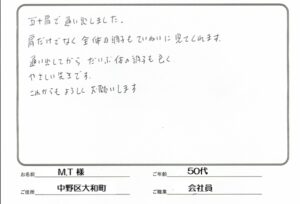 五十肩で通い出しました。
肩だけでなく 全体の調子もていねいに見てくれます。
通い出してから だいぶ体の調子も良く
やさしい先生です。
これからもよろしくお願いします
お名前 M.T 様 ご年齢 50代
ご住所 中野区大和町 ご職業 会社員